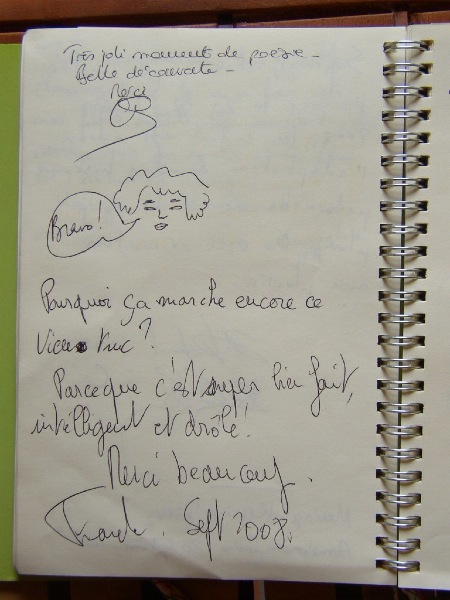 Très joli moment de poésie -
Belle découverte -
Merci
Bravo!
Pourquoi ça marche encore ce
vieux truc?
Parceque c'est super bien fait,
intelligent et drôle!
Merci beaucoup.
Sept 2008.